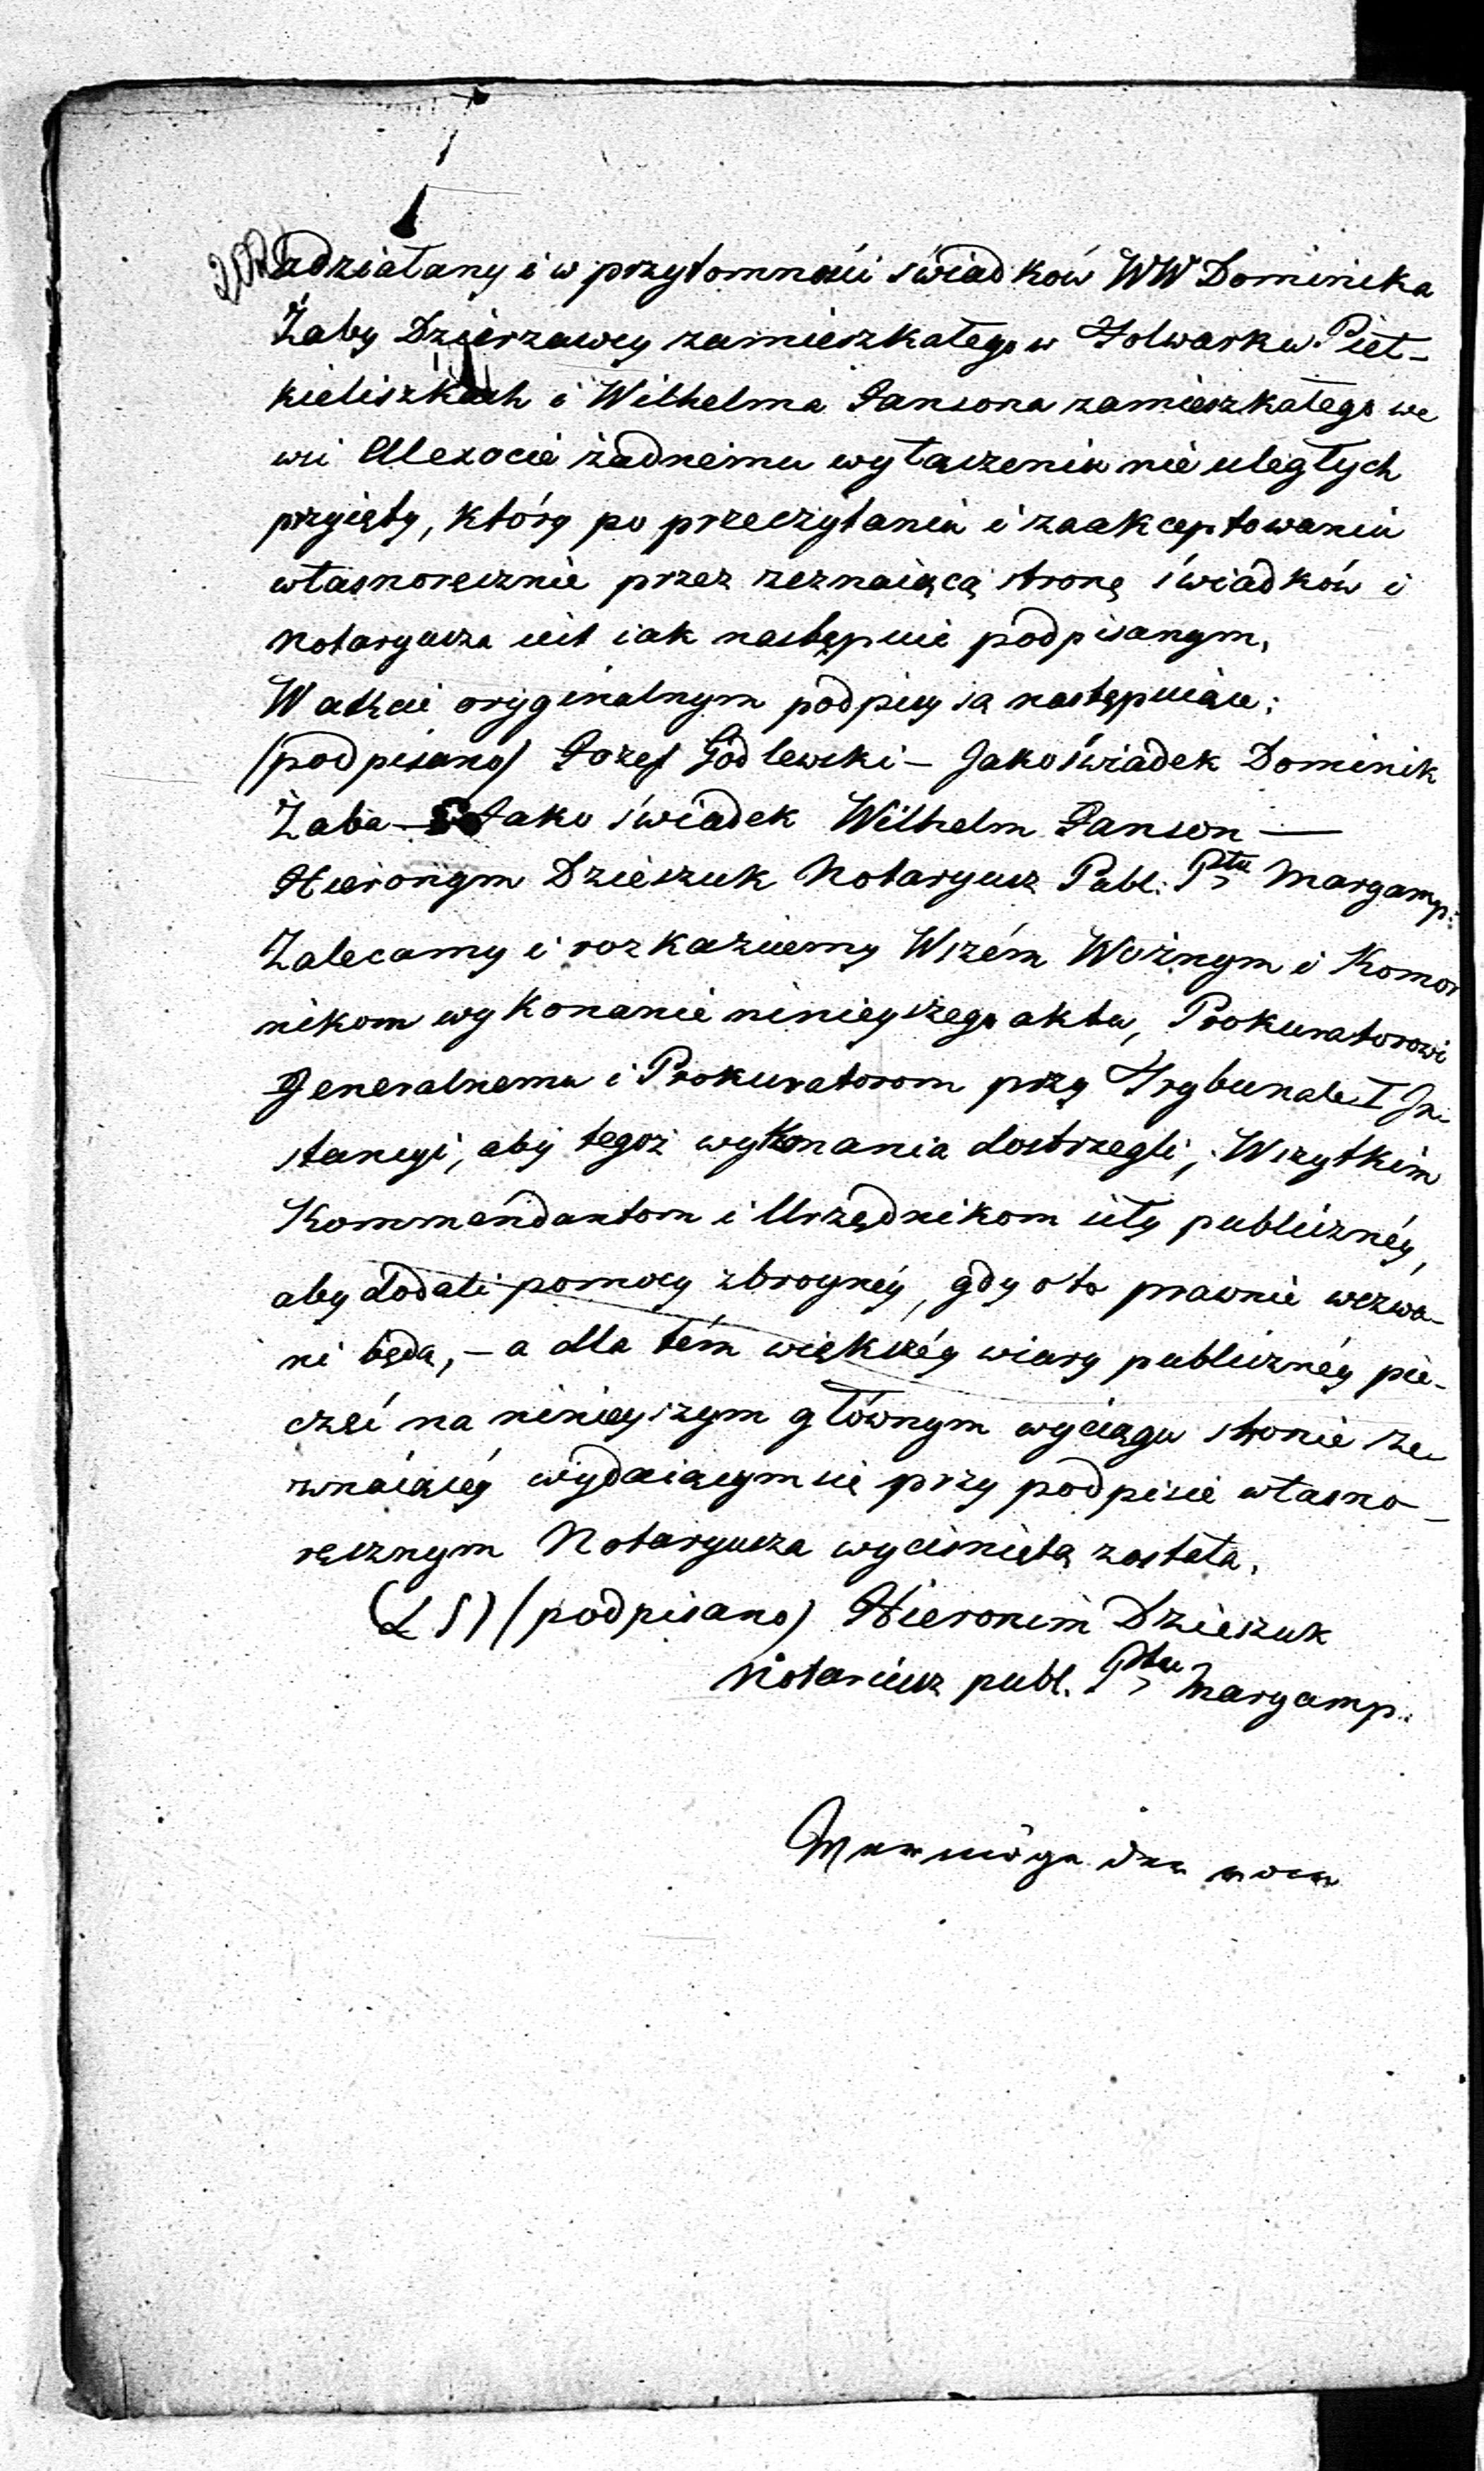 zdziałany i w przytomności świadków WW Dominika
Żaby Dzierzawcy zamieszkałego w Folwarku Piet-
kieliszkach i Wilhelma Jansona zamieszkałego we
wsi Alexocie żadnemu wyłaczeniu nie uległych
przyięty, który po przeczytaniu i zaakceptowaniu
własnoręcznie przez zeznaiącą stronę świadków i
Notaryusza iest iak następuie podpisanym,
W akcie oryginalnym podpisy są następuiące:
(podpisano) Jozef Godlewski – Jako świadek Dominik
Żaba – Jako świadek Wilhelm Janson —
Hieronym Dzieszuk Notaryusz Publ: Pttu Margamp:
Zalecamy i rozkazuiemy Wszém Woźnym i Komor
nikom wykonanie ninieyszego aktu, Prokuratorowi
Generalnemu i Prokuratorom przy Trybunale I In-
stancyi, aby tegoż wykonania dostrzegli, Wszytkim
Kommendantom i Urzędnikom siły publicznéy,
aby dodali pomocy zbroynéy, gdy o to prawnie wezwa-
ni będą, – a dla tém większéy wiary publicznéy pie-
częć na ninieyszym głównym wyciągu stronie ze-
znaiącéy wydaiącym się przy podpisie własno-
ręcznym Notaryusza wyciśniętą została.
(L S) (podpisano) Hieronim Dzieszuk
Notariusz publ. Pttu Margamp: